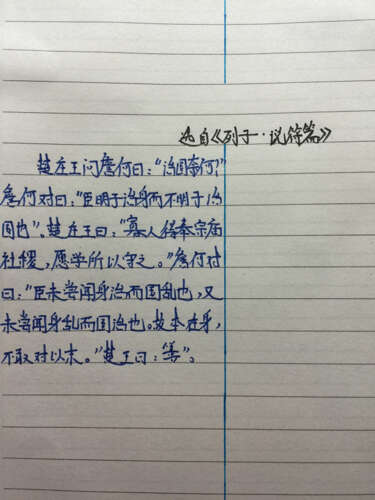 选自《列子·说符篇》
楚庄王问詹何曰：“治国奈何？”
詹何对曰：“臣明于治身而不明于治
国也”。楚庄王曰：“寡人得奉宗庙
社稷，愿学所以守之。”詹何对
曰：“臣未尝闻身治而国乱也，又
未尝闻身乱而国治也。故本在身，
不敢对以末。”楚王曰：“善”。